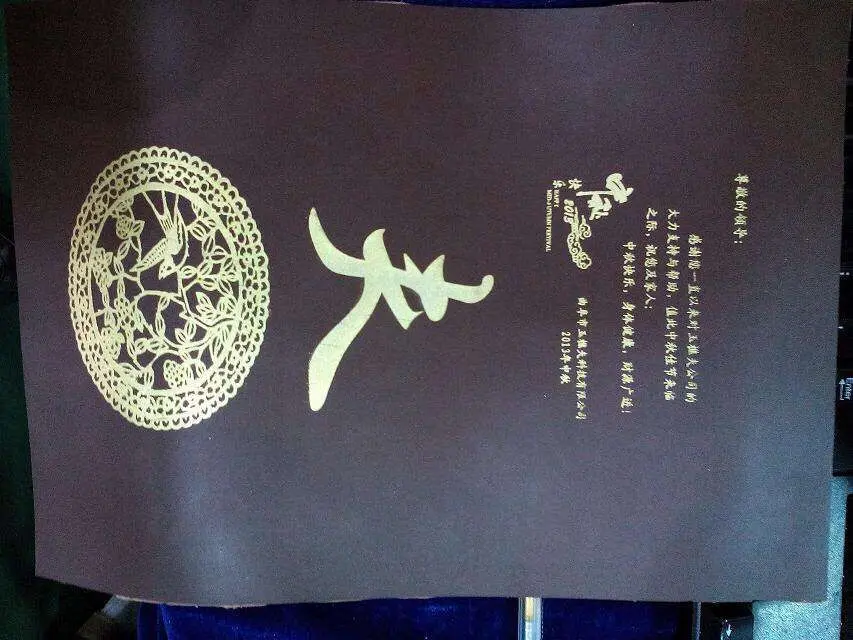 尊敬的领导：
感谢您一直以来对玉樵夫公司的
大力支持与帮助，值此中秋佳节来临
之际，祝您及家人：
中秋快乐，身体健康，财源广进！
中秋
2013
快乐
HAPPY
MID-AUTUMN FESTIVAL
曲阜市玉樵夫科技有限公司
2013年中秋